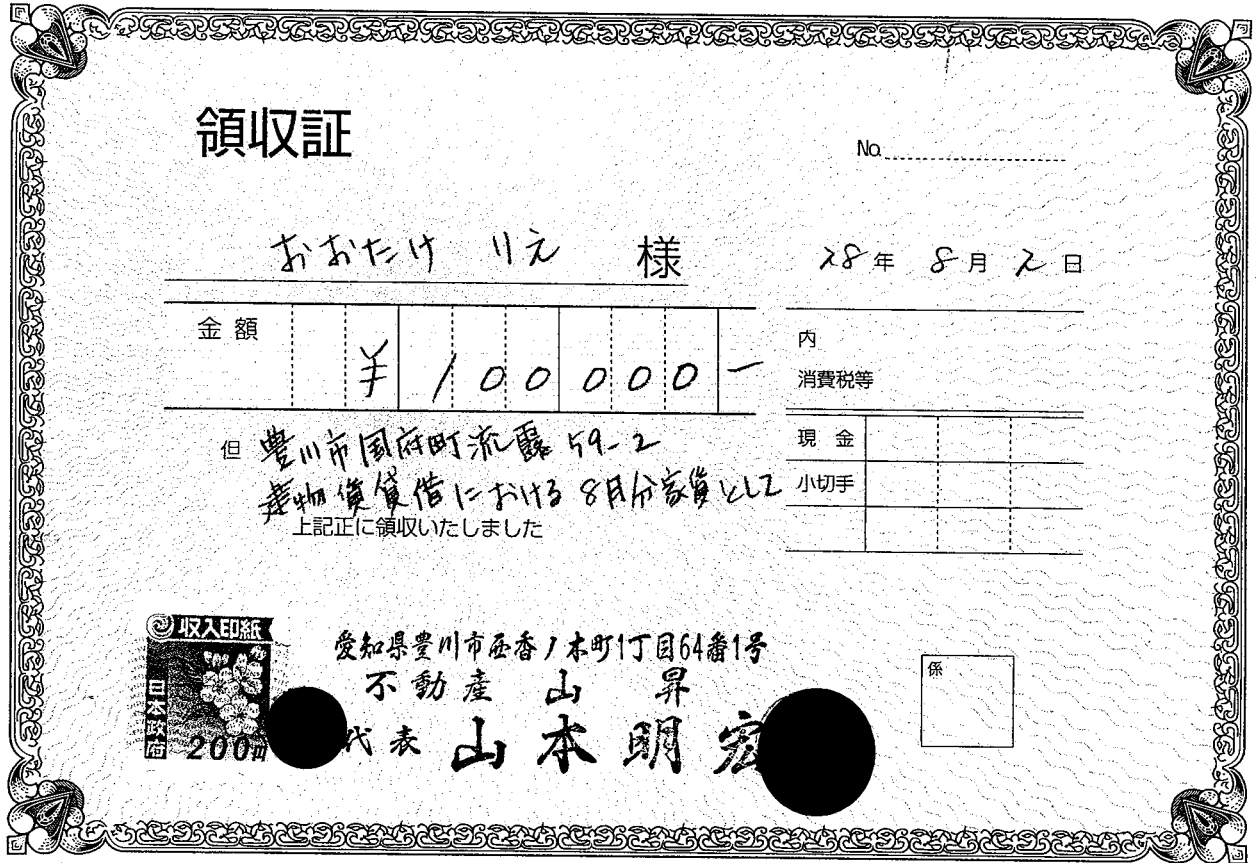 領収証
No.
おおたけ りえ 様
28年 8月 2日
金額 ¥100000-
内
消費税等
現金
小切手
但 豊川市国府町流霞59-2
建物賃貸借における8月分家賃として
上記正に領収いたしました
収入印紙
日本政府
200円
愛知県豊川市西香ノ木町1丁目64番1号
不動産 山昇
代表 山本明宏
係